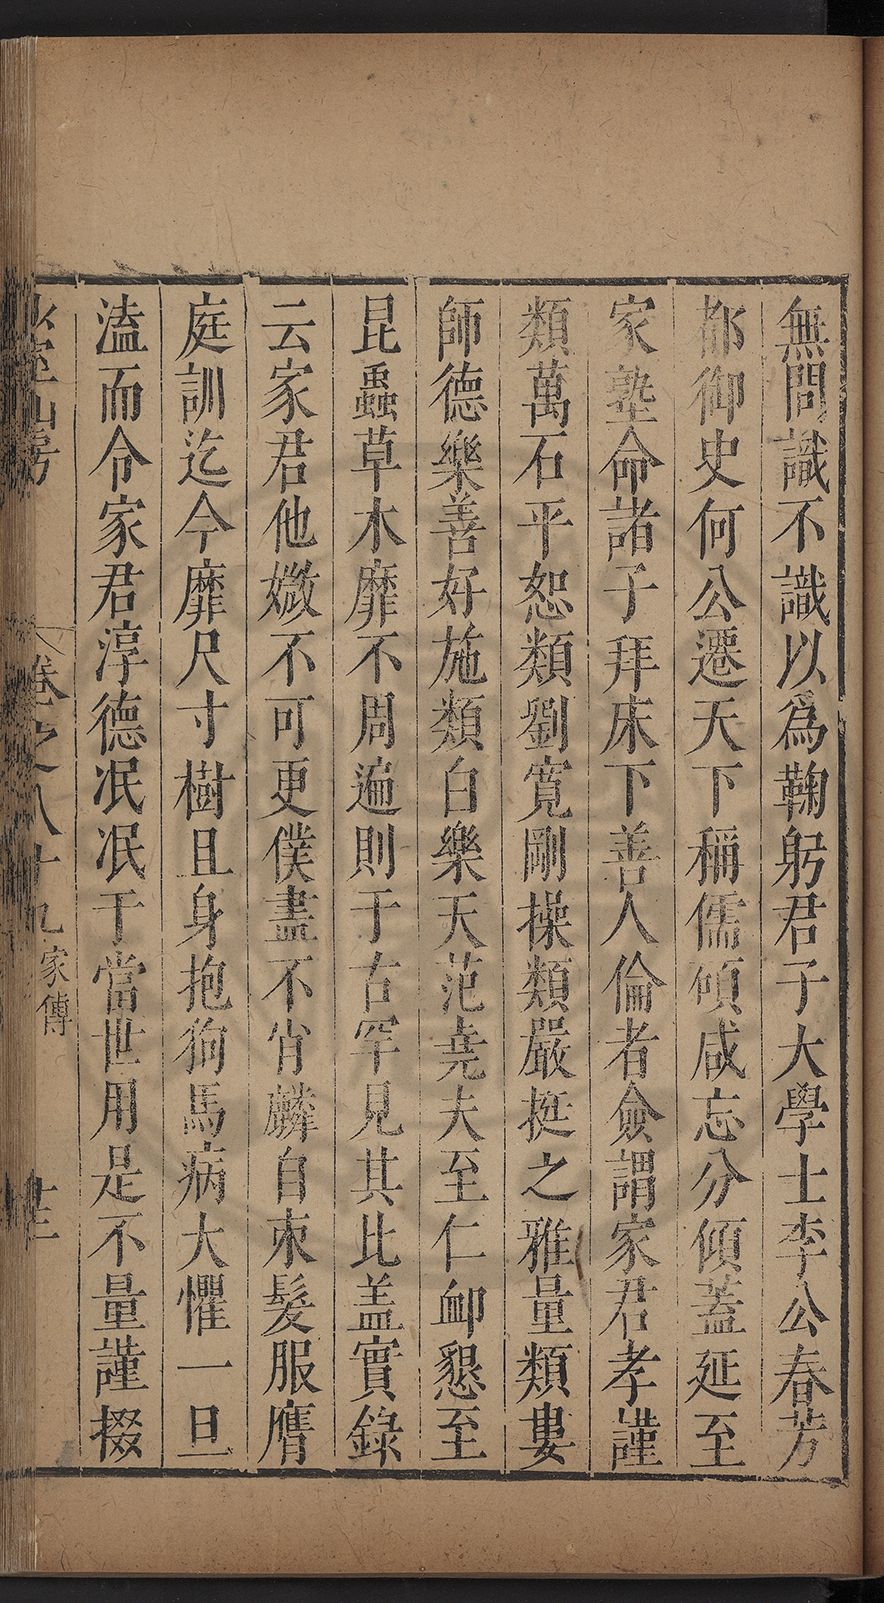 無問識不識以爲鞠躬君子大學士李公春芳
都御史何公遷天下稱儒碩咸忘分傾蓋延至
家塾命諸子拜床下善人倫者僉謂家君孝謹
類萬石平恕類劉寬剛操類嚴挺之雅量類婁
師德樂善好施類白樂天范堯夫至仁衈懇至
昆蟲草木靡不周遍則于古罕見其比盖實錄
云家君他媺不可更僕盡不肖麟自束髮服膺
庭訓迄今靡尺寸樹且身抱狗馬病大懼一旦
溘而令家君淳德泯泯于當世用是不量謹掇
少室山房
卷之八十九家傳
十三